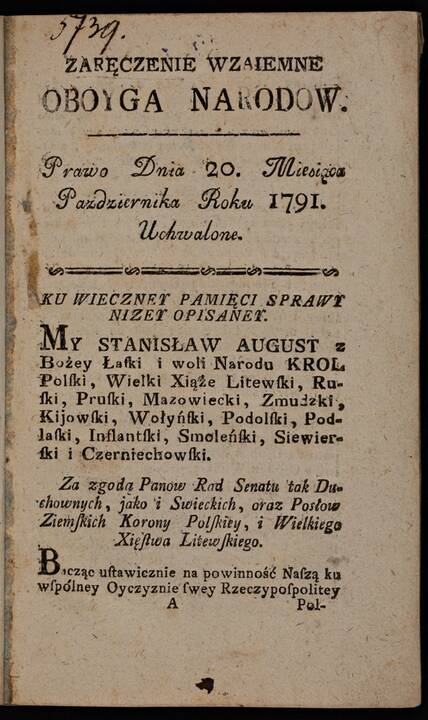 5739.
ZARĘCZENIE WZAIEMNE
OBOYGA NARODOW.
Prawo Dnia 20. Miesiąca
Pazdziernika Roku 1791.
Uchwalone.
KU WIECZNEY PAMIĘCI SPRAWY
NIZEY OPISANEY.
MY STANISŁAW AUGUST z
Bożey Łaſki i woli Narodu KROL
Polſki, Wielki Xiąże Litewſki, Ru-
ſki, Pruſki, Mazowiecki, Zmudzki,
Kijowſki, Wołyńſki, Podolſki, Pod-
laſki, Inflantſki, Smoleńſki, Siewier-
ſki i Czerniechowſki.
Za zgodą Panow Rad Senatu tak Du-
chownych, jako i Swieckich, oraz Posłow
Ziemſkich Korony Polſkiey, i Wielkiego
Xięſtwa Litewſkiego.
Bacząc uſtawicznie na powinność Naſzą ku
wſpólney Oyczyznie ſwey Rzeczypoſpolitey
A Pol-